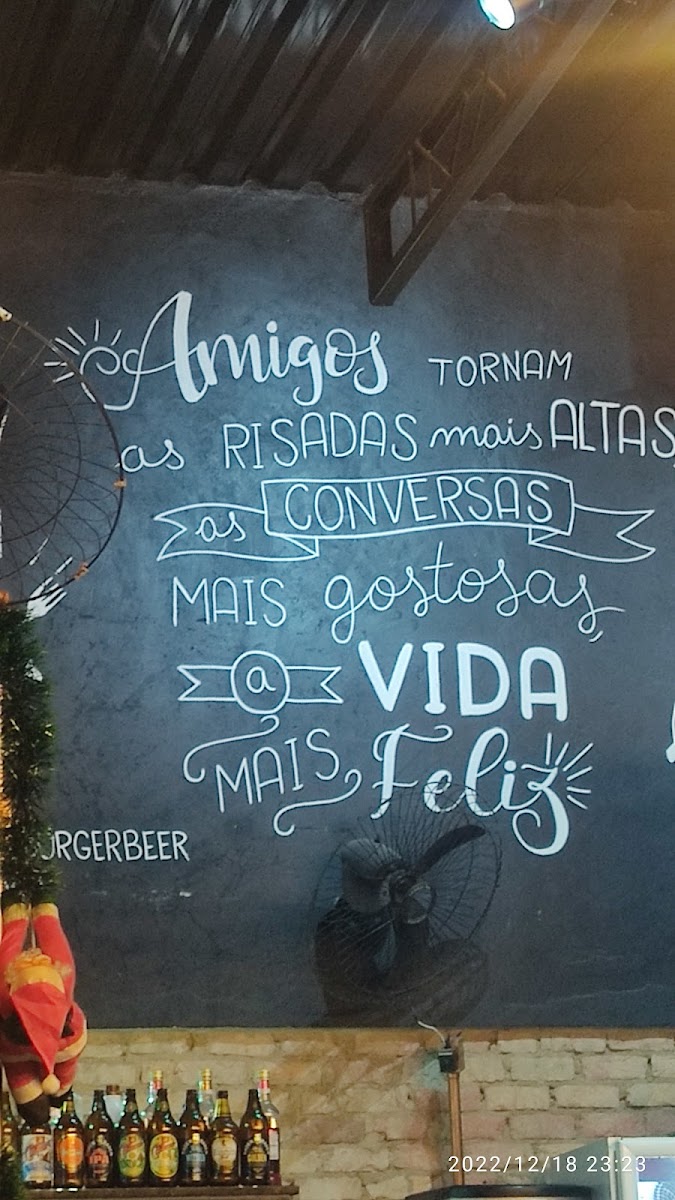 Amigos TORNAM
as RISADAS mais ALTAS,
as CONVERSAS
MAIS gostosas,
a VIDA
MAIS Feliz
URGERBEER
2022/12/18 23:23